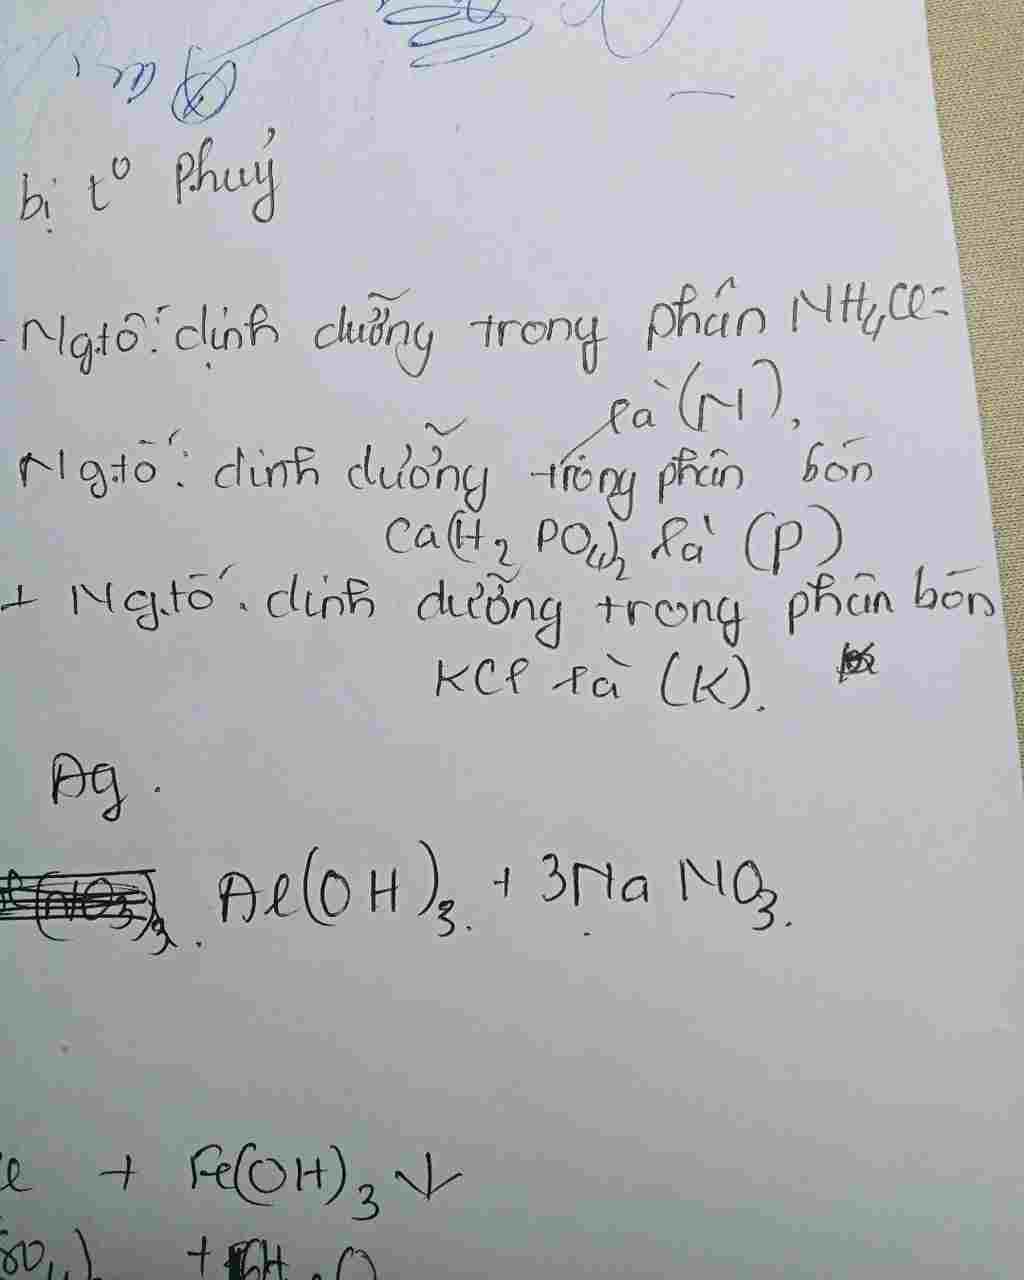 bị t⁰ phuỷ
- Ng.tố: dinh dưỡng trong phân NH₄Cl =
là (N).
Ng.tố: dinh dưỡng trong phân bón
Ca(H₂PO₄)₂ là (P)
+ Ng.tố. dinh dưỡng trong phân bón
KCl là (K).
Ag.
Al(OH)₃ + 3NaNO₃.
+ Fe(OH)₃ ↓